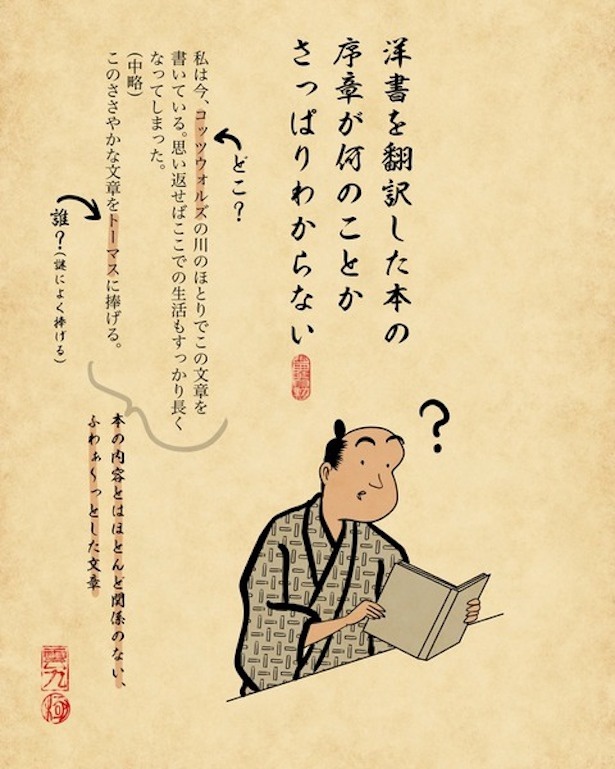 洋書を翻訳した本の
序章が何のことか
さっぱりわからない
どこ?
私は今、コッツウォルズの川のほとりでこの文章を
書いている。思い返せばここでの生活もすっかり長く
なってしまった。
(中略)
このささやかな文章をトーマスに捧げる。
誰?(謎によく捧げる)
本の内容とはほとんど関係のない、
ふわぁ〜っとした文章
?